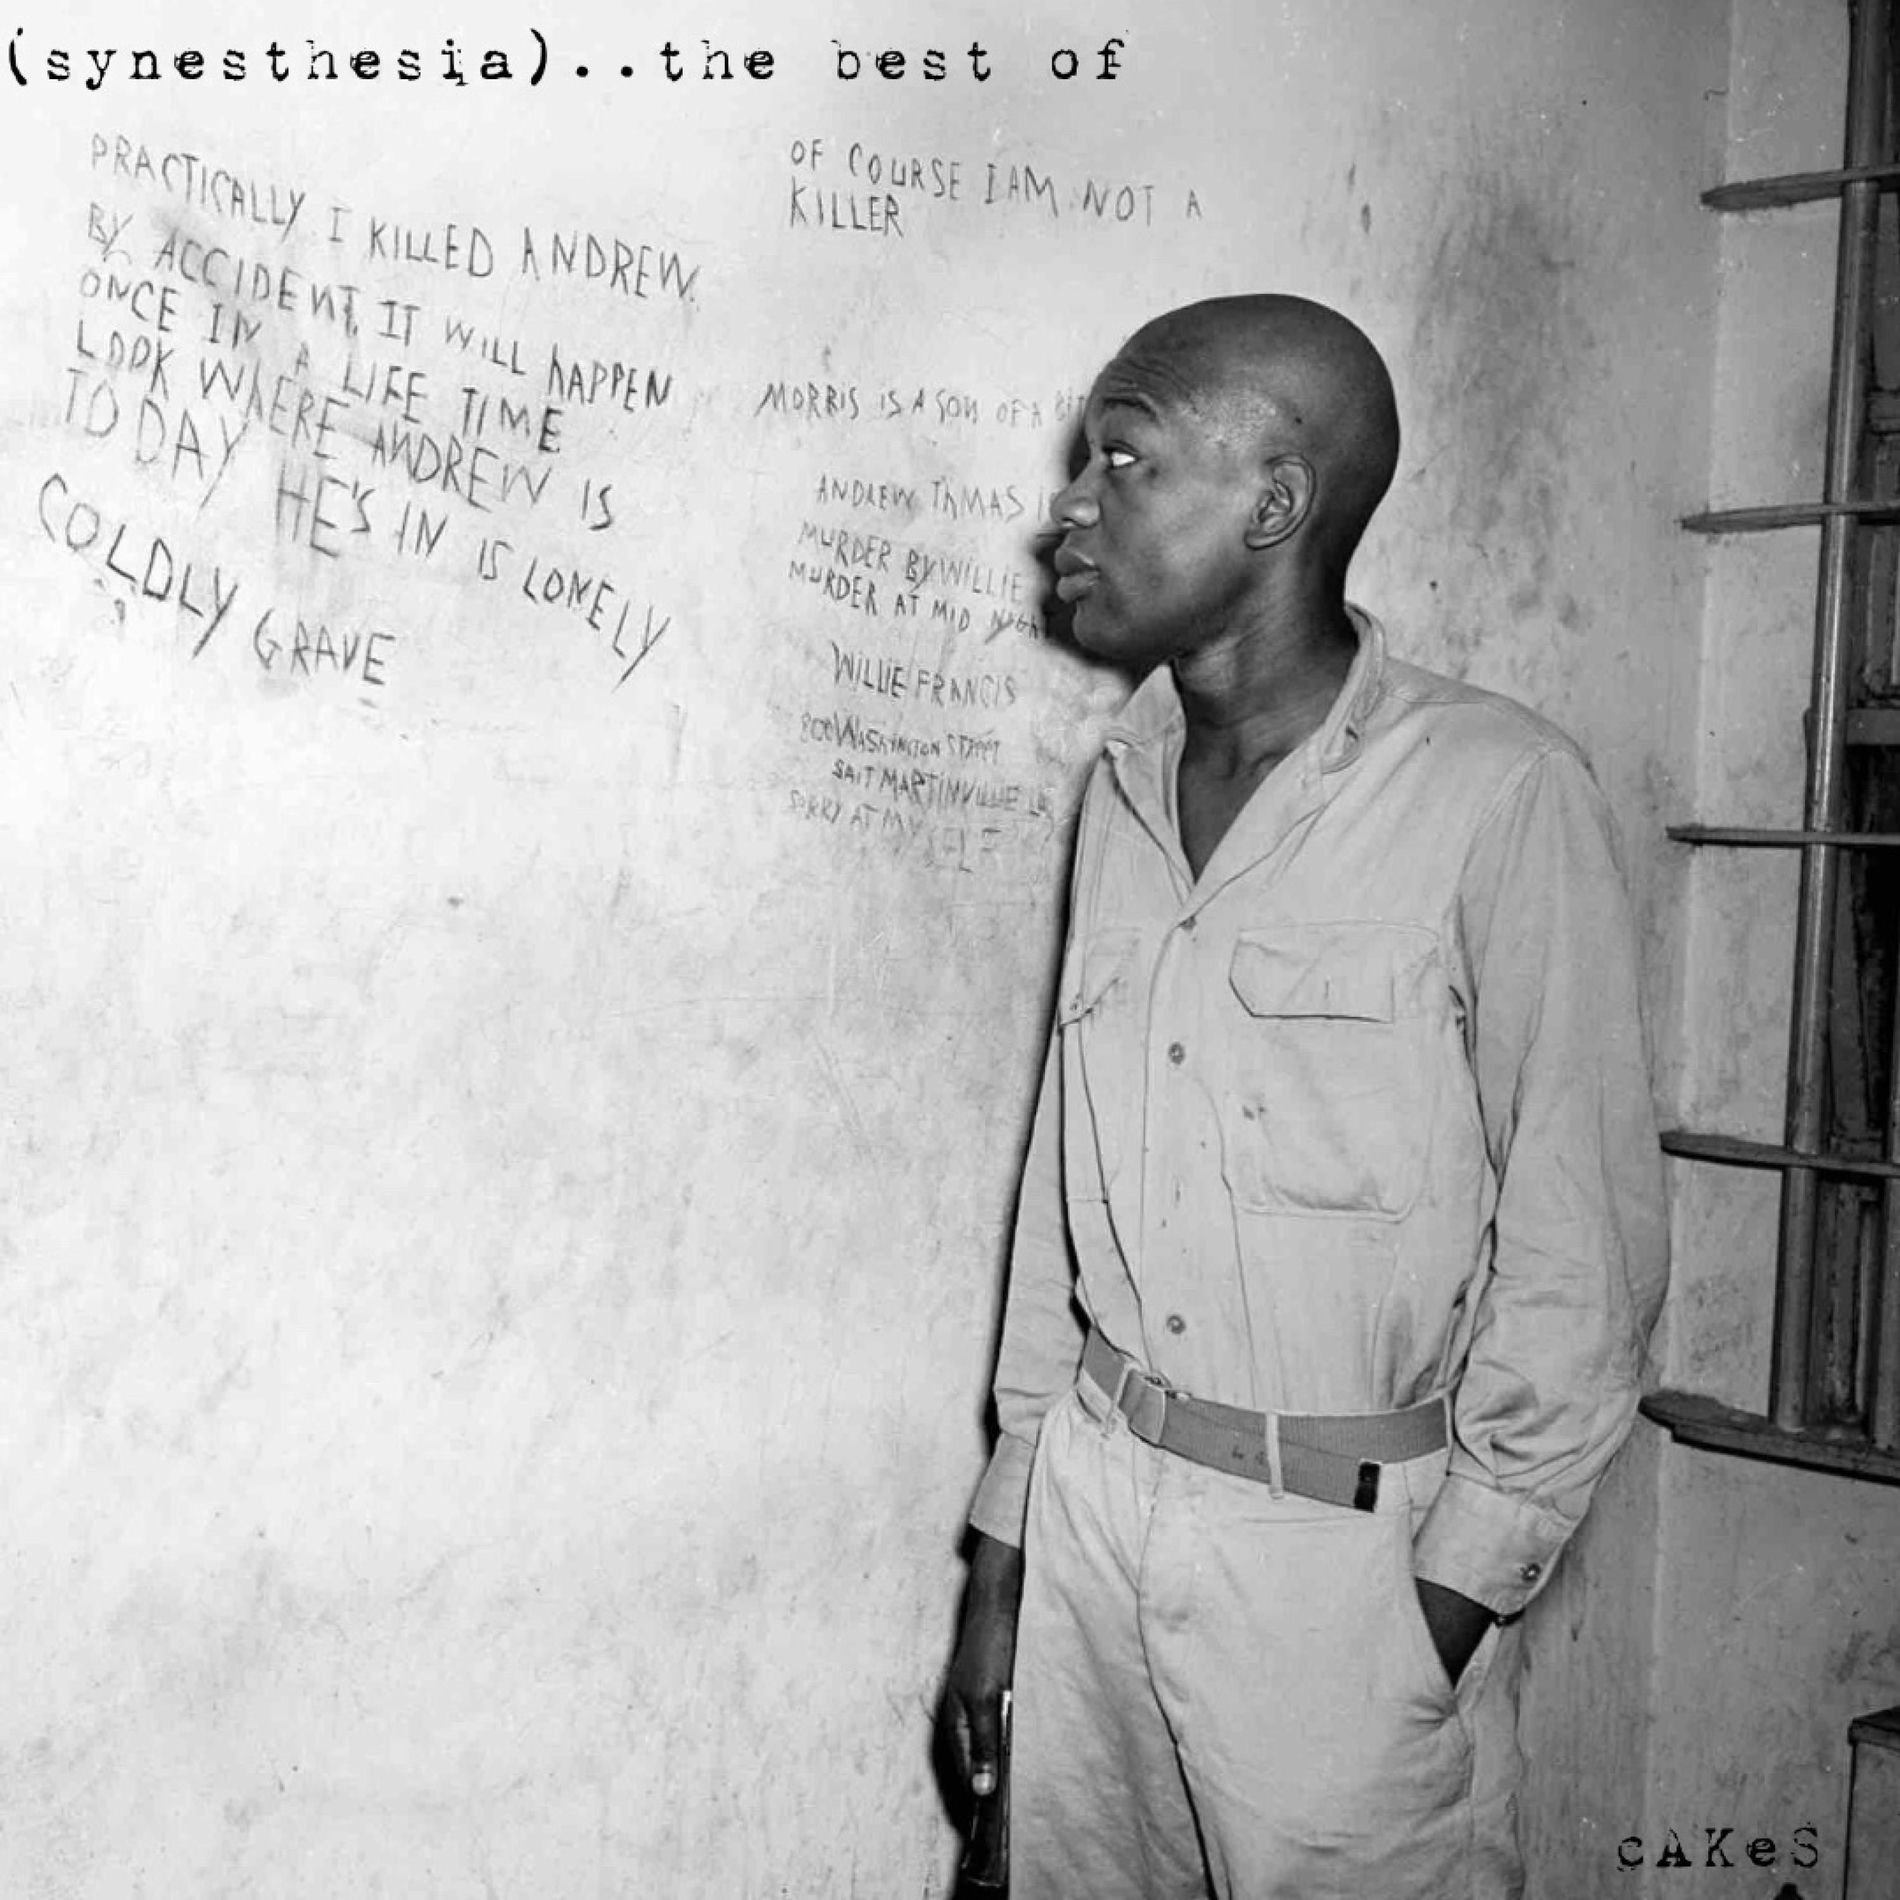 (synesthesia)..the best of
PRACTICALLY I KILLED ANDREW
BY ACCIDENT. IT WILL HAPPEN
ONCE IN A LIFE TIME
LOOK WHERE ANDREW IS
TODAY HE'S IN IS LONELY
COLDLY GRAVE
OF COURSE I AM NOT A
KILLER
MORRIS IS A SON OF A
ANDREW THMAS
MURDER BY WILLIE
MURDER AT MID
WILLIE FRANCIS
800 WASHINGTON
SAIT MARTINVILLE
SORRY AT MY SELF
cAKeS